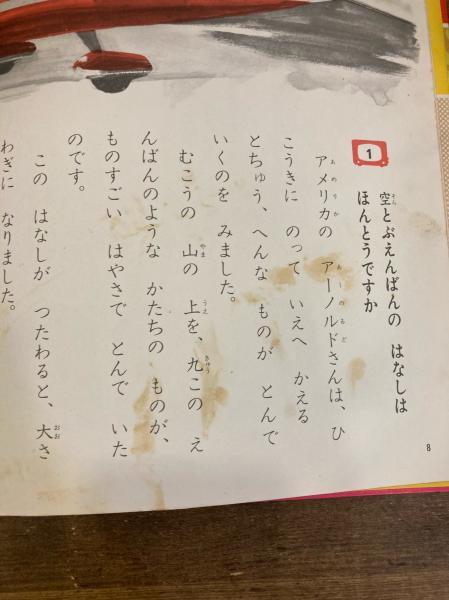 1
空とぶえんばんの はなしは
ほんとうですか
アメリカの アーノルドさんは、ひ
こうきに のって いえへ かえる
とちゅう、へんな ものが とんで
いくのを みました。
むこうの 山の 上を、九この え
んばんのような かたちの ものが、
ものすごい はやさで とんで いた
のです。
この はなしが つたわると、大さ
わぎに なりました。
8